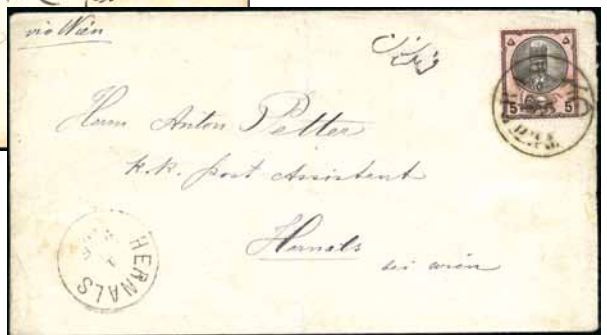 via Wien
فرنگستان
۵ ۵
5 5
Herrn Anton Petter
k.k. post Assistent
Hernals
bei wien
HERNALS